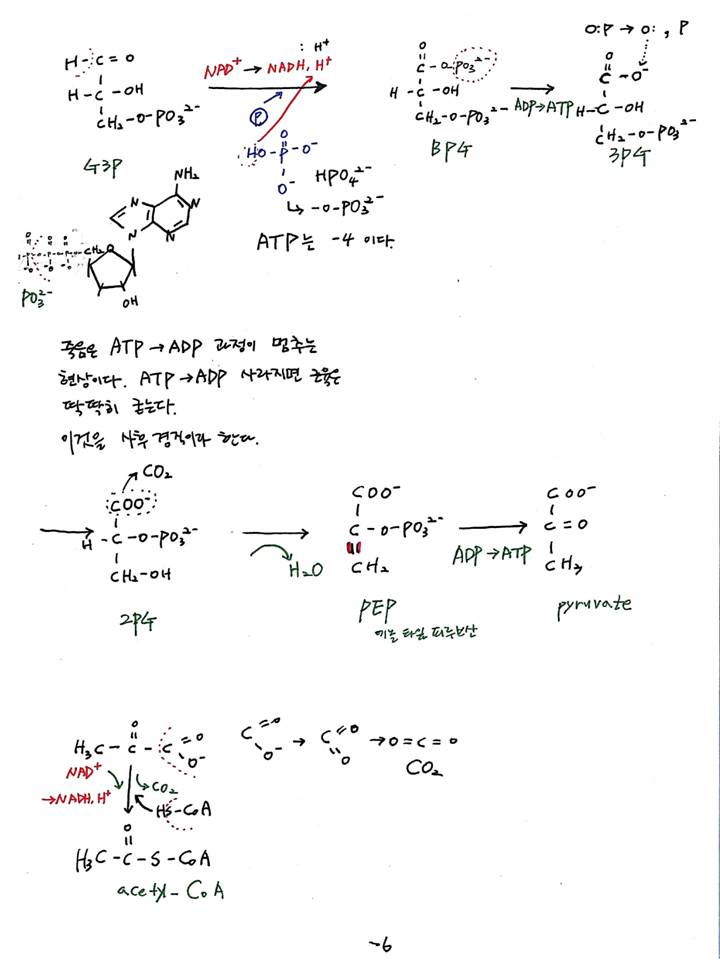 O:P → O: , P
: H⁺
NAD⁺ → NADH, H⁺
H - C = O
H - C - OH
CH₂-O-PO₃²⁻
G3P
P
HO-P-O⁻
O
O⁻
HPO₄²⁻
↳ -O-PO₃²⁻
ATP는 -4 이다.
O
C - O-PO₃²⁻
H - C - OH
CH₂-O-PO₃²⁻
BPG
ADP→ATP
O
C - O⁻
H - C - OH
CH₂-O-PO₃²⁻
3PG
NH₂
N N
N N
CH₂ O
OH
PO₃²⁻
죽음은 ATP → ADP 과정이 멈추는
현상이다. ATP → ADP 사라지면 근육은
딱딱히 굳는다.
이것을 사후경직이라 한다.
CO₂
COO⁻
H - C - O-PO₃²⁻
CH₂-OH
2PG
H₂O
COO⁻
C - O-PO₃²⁻
CH₂
PEP
ADP → ATP
COO⁻
C = O
CH₃
pyruvate
O
H₃C - C - C = O
O⁻
NAD⁺
→NADH, H⁺
CO₂
HS-CoA
O
H₃C - C - S - CoA
acetyl-CoA
C = O
O⁻
→ C = O
O
→ O=C=O
CO₂
-6